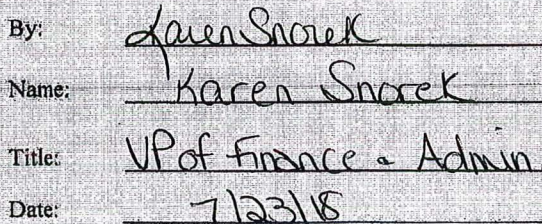 By: Karen Snorek
Name: Karen Snorek
Title: VP of Finance & Admin
Date: 7/23/18